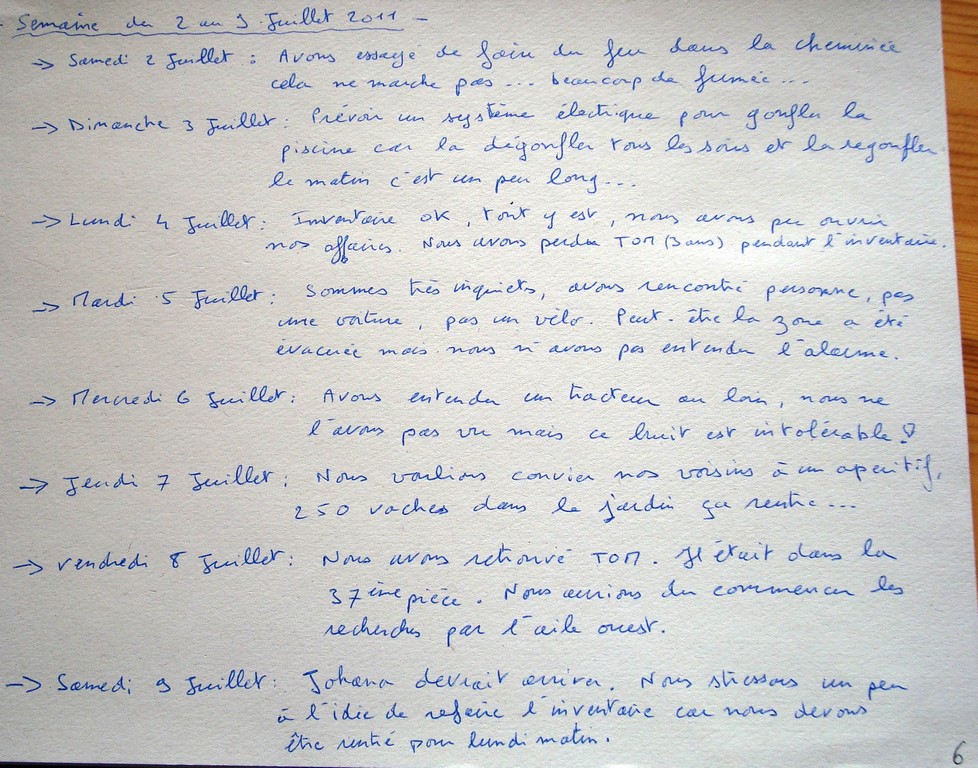 - Semaine du 2 au 9 Juillet 2011 -
-> Samedi 2 Juillet : Avons essayé de faire du feu dans la cheminée
cela ne marche pas ... beaucoup de fumée ...
-> Dimanche 3 Juillet : Prévoir un système électrique pour gonfler la
piscine car la dégonfler tous les soirs et la regonfler
le matin c'est un peu long ...
-> Lundi 4 Juillet : Inventaire OK, tout y est, nous avons pu ouvrir
nos affaires. Nous avons perdu TOM (3 ans) pendant l'inventaire.
-> Mardi 5 Juillet : Sommes très inquiets, avons rencontré personne, pas
une voiture, pas un vélo. Peut-être la zone a été
évacuée mais nous n'avons pas entendu l'alarme.
-> Mercredi 6 Juillet : Avons entendu un tracteur au loin, nous ne
l'avons pas vu mais ce bruit est intolérable !
-> Jeudi 7 Juillet : Nous voulions convier nos voisins à un apéritif,
250 vaches dans le jardin ça rentre ...
-> Vendredi 8 Juillet : Nous avons retrouvé TOM. Il était dans la
37ème pièce. Nous aurions du commencer les
recherches par l'aile ouest.
-> Samedi 9 Juillet : Johana devrait arriver. Nous stressons un peu
à l'idée de refaire l'inventaire car nous devons
être rentré pour lundi matin.
6